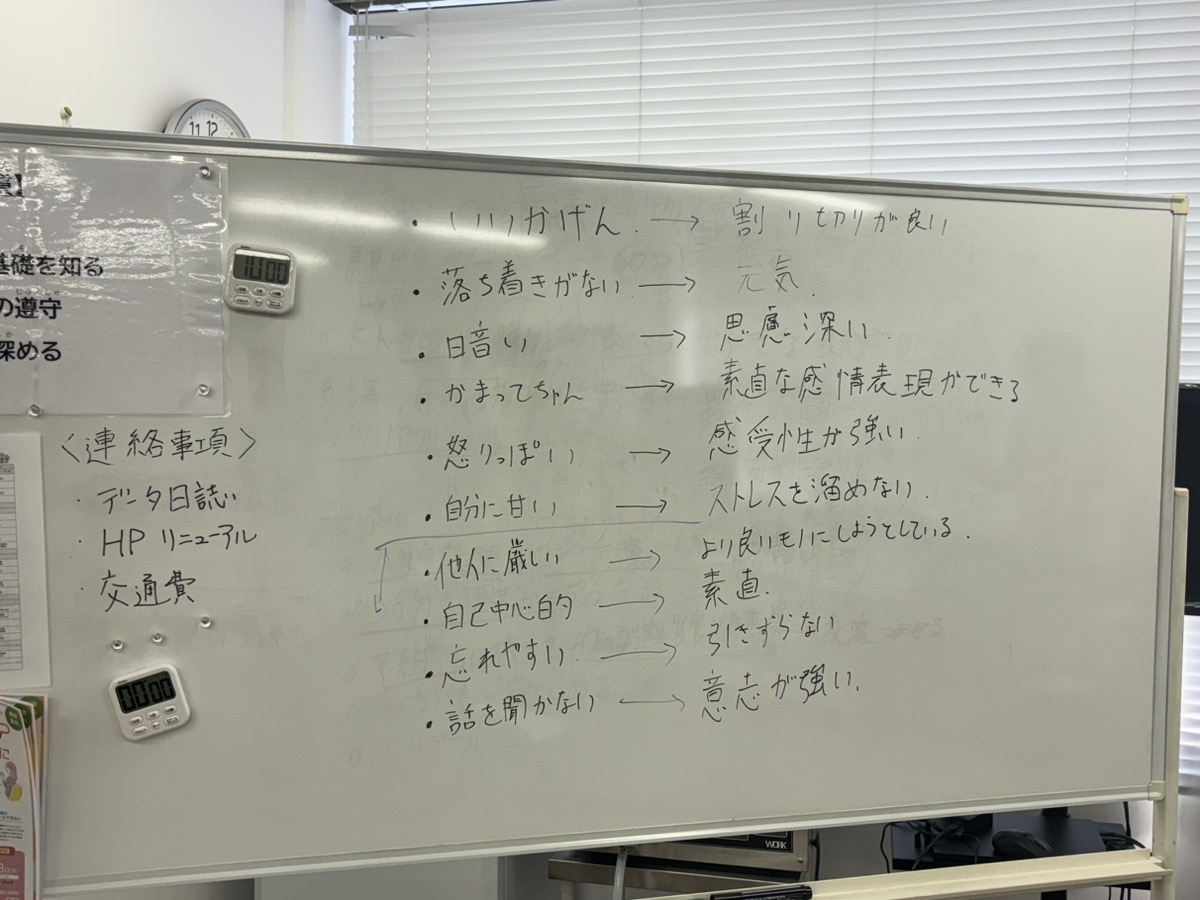 11 12
基礎を知る
の遵守
深める
10:00
・いいかげん. → 割り切りが良い
・落ち着きがない. → 元気.
・暗い → 思慮深い.
・かまってちゃん → 素直な感情表現ができる
・怒りっぽい → 感受性が強い.
・自分に甘い → ストレスを溜めない.
・他人に厳しい → より良いモノにしようとしている.
・自己中心的 → 素直.
・忘れやすい. → 引きずらない
・話を聞かない → 意志が強い.
〈連絡事項〉
・データ日誌
・HPリニューアル
・交通費
00:00
WORK